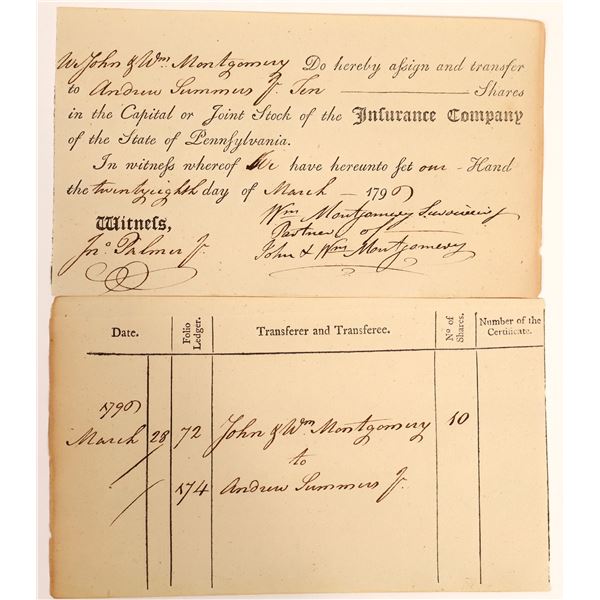 We John & Wm Montgomery Do hereby aſsign and transfer
to Andrew Summers Jr. Ten Shares
in the Capital or Joint Stock of the Inſurance Company
of the State of Pennſylvania.
In witneſs whereof We have hereunto ſet our Hand
the twenty eighth day of March 1796
Witneſs,
Jno. Palmer Jr.
Wm Montgomery Surviving
Partner of
John & Wm Montgomery
Date. Folio Ledger. Transferer and Transferee. No of Shares. Number of the Certificate.
1796
March 28 72 John & Wm Montgomery 10
to
174 Andrew Summers Jr.